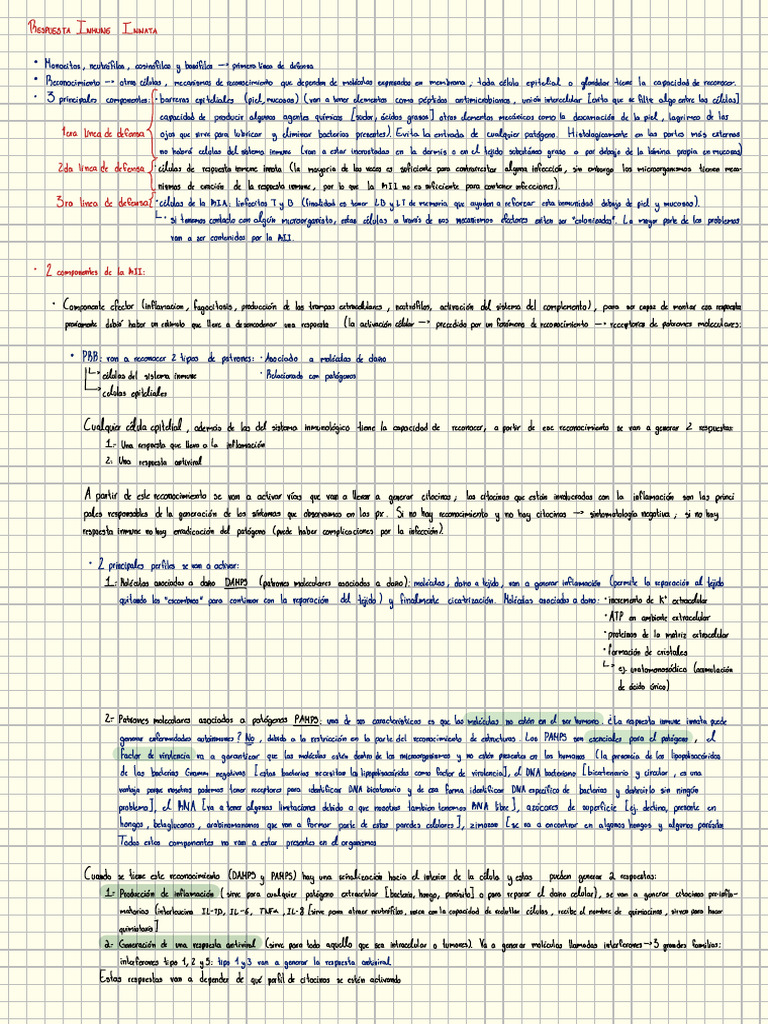 Respuesta Inmune Innata
• Monocitos, neutrófilos, eosinófilos y basófilos → primera línea de defensa
• Reconocimiento → otras células, mecanismos de reconocimiento que dependen de moléculas expresadas en membrana, toda célula epitelial o glandular tiene la capacidad de reconocer.
• 3 principales componentes: • barreras epiteliales (piel, mucosas) (van a tener elementos como péptidos antimicrobianos, unión intercelular [evita que se filtre algo entre las células]
1era línea de defensa capacidad de producir algunos agentes químicos [sudor, ácidos grasos] otros elementos mecánicos como la descamación de la piel, lagrimeo de los
ojos que sirve para lubricar y eliminar bacterias presentes). Evita la entrada de cualquier patógeno. Histológicamente en las partes más externas
no habrá células del sistema inmune (van a estar incrustadas en la dermis o en el tejido subcutáneo graso o por debajo de la lámina propia en mucosas)
2da línea de defensa • células de respuesta inmune innata (la mayoría de las veces es suficiente para contrarrestar alguna infección, sin embargo los microorganismos tienen meca-
nismos de evasión de la respuesta inmune, por lo que la MII no es suficiente para contener infecciones).
3ra línea de defensa • células de la MIA: linfocitos T y B (finalidad es tener LB y LT de memoria que ayuden a reforzar esta inmunidad debajo de piel y mucosas).
↳ • si tenemos contacto con algún microorganismo, estas células a través de sus mecanismos efectores evitan ser "colonizados". La mayor parte de los problemas
van a ser contenidos por la MII.
• 2 componentes de la MII:
• Componente efector (inflamación, fagocitosis, producción de las trampas extracelulares, neutrófilos, activación del sistema del complemento), para ser capaz de montar esa respuesta
previamente debió haber un estímulo que lleve a desencadenar una respuesta (la activación celular → precedida por un fenómeno de reconocimiento → receptores de patrones moleculares:
• PRR: van a reconocer 2 tipos de patrones: • Asociado a moléculas de daño
↳ células del sistema inmune • Relacionado con patógenos
↳ células epiteliales
Cualquier célula epitelial, además de las del sistema inmunológico tiene la capacidad de reconocer, a partir de ese reconocimiento se van a generar 2 respuestas:
1.- Una respuesta que lleva a la inflamación
2.- Una respuesta antiviral
A partir de este reconocimiento se van a activar vías que van a llevar a generar citocinas, las citocinas que están involucradas con la inflamación son las princi
pales responsables de la generación de los síntomas que observamos en los px. Si no hay reconocimiento y no hay citocinas → sintomatología negativa, si no hay
respuesta inmune no hay erradicación del patógeno (puede haber complicaciones por la infección).
• 2 principales perfiles se van a activar:
1.- Moléculas asociadas a daño DAMPS (patrones moleculares asociados a daño): moléculas, daño a tejido, van a generar inflamación (permite la reparación al tejido
quitando los "escombros" para continuar con la reparación del tejido) y finalmente cicatrización. Moléculas asociadas a daño: • incremento de K⁺ extracelular
• ATP en ambiente extracelular
• proteínas de la matriz extracelular
• formación de cristales
↳ ej. uratomonosódico (acumulación
de ácido úrico)
2.- Patrones moleculares asociados a patógenos PAMPS: una de sus características es que las moléculas no estén en el ser humano. ¿La respuesta inmune innata puede
generar enfermedades autoinmunes? No, debido a la restricción en la parte del reconocimiento de estructuras. Los PAMPS son esenciales para el patógeno, el
factor de virulencia va a garantizar que las moléculas estén dentro de los microorganismos y no estén presentes en los humanos (la presencia de los lipopolisacáridos
de las bacterias Gramm negativas [estas bacterias necesitan la lipopolisacárida como factor de virulencia], el DNA bacteriano [bicatenario y circular, es una
ventaja porque nosotros podemos tener receptores para identificar DNA bicatenario y de esa forma identificar DNA específico de bacterias y destruirlo sin ningún
problema], el RNA [va a tener algunas limitaciones debido a que nosotros también tenemos RNA libre], azúcares de superficie [ej. dectina, presente en
hongos, betaglucanos, arabinomananos que van a formar parte de estas paredes celulares], zimosan [se va a encontrar en algunos hongos y algunos parásitos
Todos estos componentes no van a estar presentes en el organismo
Cuando se tiene este reconocimiento (DAMPS y PAMPS) hay una señalización hacia el interior de la célula y estas pueden generar 2 respuestas:
1.- Producción de inflamación (sirve para cualquier patógeno extracelular [bacteria, hongo, parásito] o para reparar el daño celular), se van a generar citocinas proinfla-
matorias (interleucina IL-1β, IL-6, TNFα, IL-8 [sirve para atraer neutrófilos, como con la capacidad de reclutar células, recibe el nombre de quimiocina, sirven para hacer
quimiotaxis]
2.- Generación de una respuesta antiviral (sirve para todo aquello que sea intracelular o tumores). Va a generar moléculas llamadas interferones → 3 grandes familias:
interferones tipo 1, 2 y 3: tipo 1 y 3 van a generar la respuesta antiviral
Estas respuestas van a depender de qué perfil de citocinas se están activando